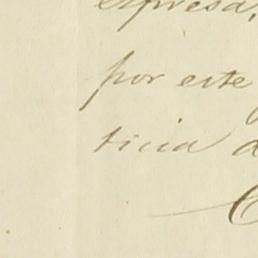 expresa,
por este
ticia d